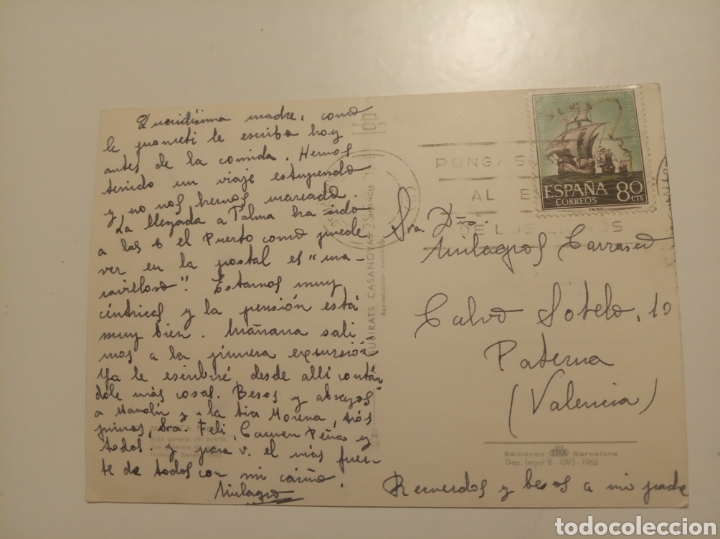 Queridísima madre, como
le prometí le escribo hoy
antes de la comida. Hemos
tenido un viaje estupendo
y no nos hemos mareado.
La llegada a Palma ha sido
a las 6 el Puerto como puede
ver en la postal es "ma-
ravilloso". Estamos muy
céntricos y la pensión está
muy bien. Mañana sali
mos a la primera excursión
Ya le escribiré desde allí contán
dole más cosas. Besos y abrazos
a Manolín y a la tía Morena,
primos, Sra. Feli, Carmen Peñas y
todos. y para v. el más fuer-
te de todos con mi cariño.
Milagro
SUBIRATS CASANOVAS
PONGA
AL
ESPAÑA
CORREOS
80
CTS
Sra. Dña.
Milagros Carrasco
Calvo Sotelo, 10
Paterna
(Valencia)
Ediciones Barcelona
Dep. Legal B. 1093-1962
Recuerdos y besos a mi padre
todocoleccion